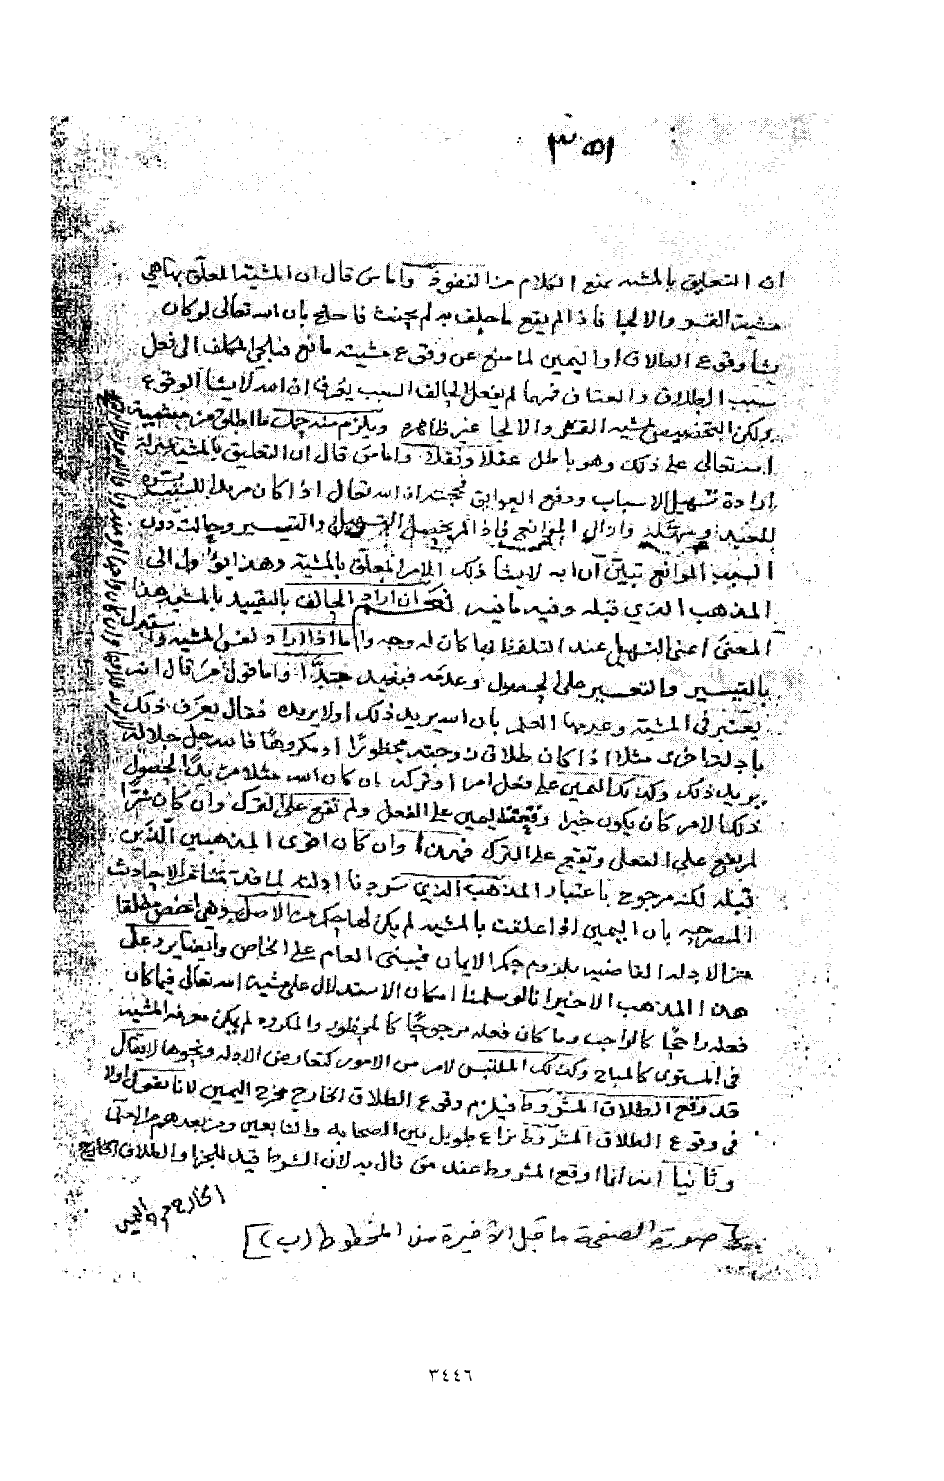 ٣٥١
ان التعليق بالمشيه يمنع الكلام من النفوذ واما من قال ان المشية المعلق بها هي
مشية القسر والالجا فاذا لم يقع ما حلف به لم يحنث فاحتج بان الله تعالى لو كان
يشا وقوع الطلاق او اليمين لما منع عن وقوع مشيته مانع فيلجي المكلف الى فعل
سبب الطلاق والعتاق فمهما لم يفعل الحالف السبب يعرف ان الله لا يشا الوقوع
ولكن التخصيص بمشيه القسر والالجا غير ظاهر ويلزم منه حمل ما اطلق من مشية
الله تعالى على ذلك وهو باطل عقلا ونقلا واما من قال ان التعليق بالمشيه بمنزلة
ارادة تسهيل الاسباب ودفع العوايق فحجته ان الله تعالى اذا كان مريدا للشي يسره
للعبد وازال الموانع فاذا لم يحصل التسهيل والتيسير وحالت دون
السبب الموانع تبين ان الله لا يشا ذلك الامر المعلق بالمشية وهذا يؤول الى
المذهب الذي قبله وفيه ما فيه نعم ان اراد الحالف بالتقييد بالمشيه هذا
المعنى اعني التسهيل عند التلفظ بها كان له وجه واما اذا اراد نفس المشيه واستدل
بالتيسير والتعسير على الحصول وعدمه فبعيد جدا واما قول من قال انه
يعتبر في المشية وعدمها العلم بان الله يريد ذلك او لا يريده فقال يعرف ذلك
بادلة اخرى مثلا اذا كان طلاق زوجته محظورا او مكروها فالله جل جلاله
يريد ذلك وكذلك اليمين على فعل امر او تركه بان كان الله مثلا مريدا لحصول
ذلك الامر كان يكون خيرا وقعت اليمين على الفعل ولم تقع على الترك وان كان شرا
لم تقع على الفعل وتقع على الترك فهذا وان كان اقوى المذهبين الذين
قبله لكنه مرجوح باعتبار المذهب الذي سردنا ادلته لمنافاته الاحاديث
المصرحه بان اليمين اذا علقت بالمشيه لم يكن لها حكم من الاصل وهي اخص مطلقا
من الادله القاضيه بلزوم حكم الايمان فيبنى العام على الخاص وايضا يرد على
هذا المذهب الاخير انا لو سلمنا امكان الاستدلال على مشية الله تعالى فيما كان
فعله راجحا كالواجب وما كان فعله مرجوحا كالمحظور والمكروه لم يكن معرفه المشيه
في المستوى كالمباح وكذلك الملتبس لامر من الامور كتعارض الادله ونحوها لا يقال
قد وقع الطلاق المشروط فيلزم وقوع الطلاق الخارج مخرج اليمين لانا نقول اولا
في وقوع الطلاق المشروط نزاع طويل بين الصحابه والتابعين ومن بعدهم
وثانيا انه انما وقع المشروط عند من قال به لان الشرط قيد للجزا والطلاق الخارج
الخارج مخرج اليمين
صورة الصفحة ما قبل الأخيرة من المخطوط (ب)]
٣٤٤٦